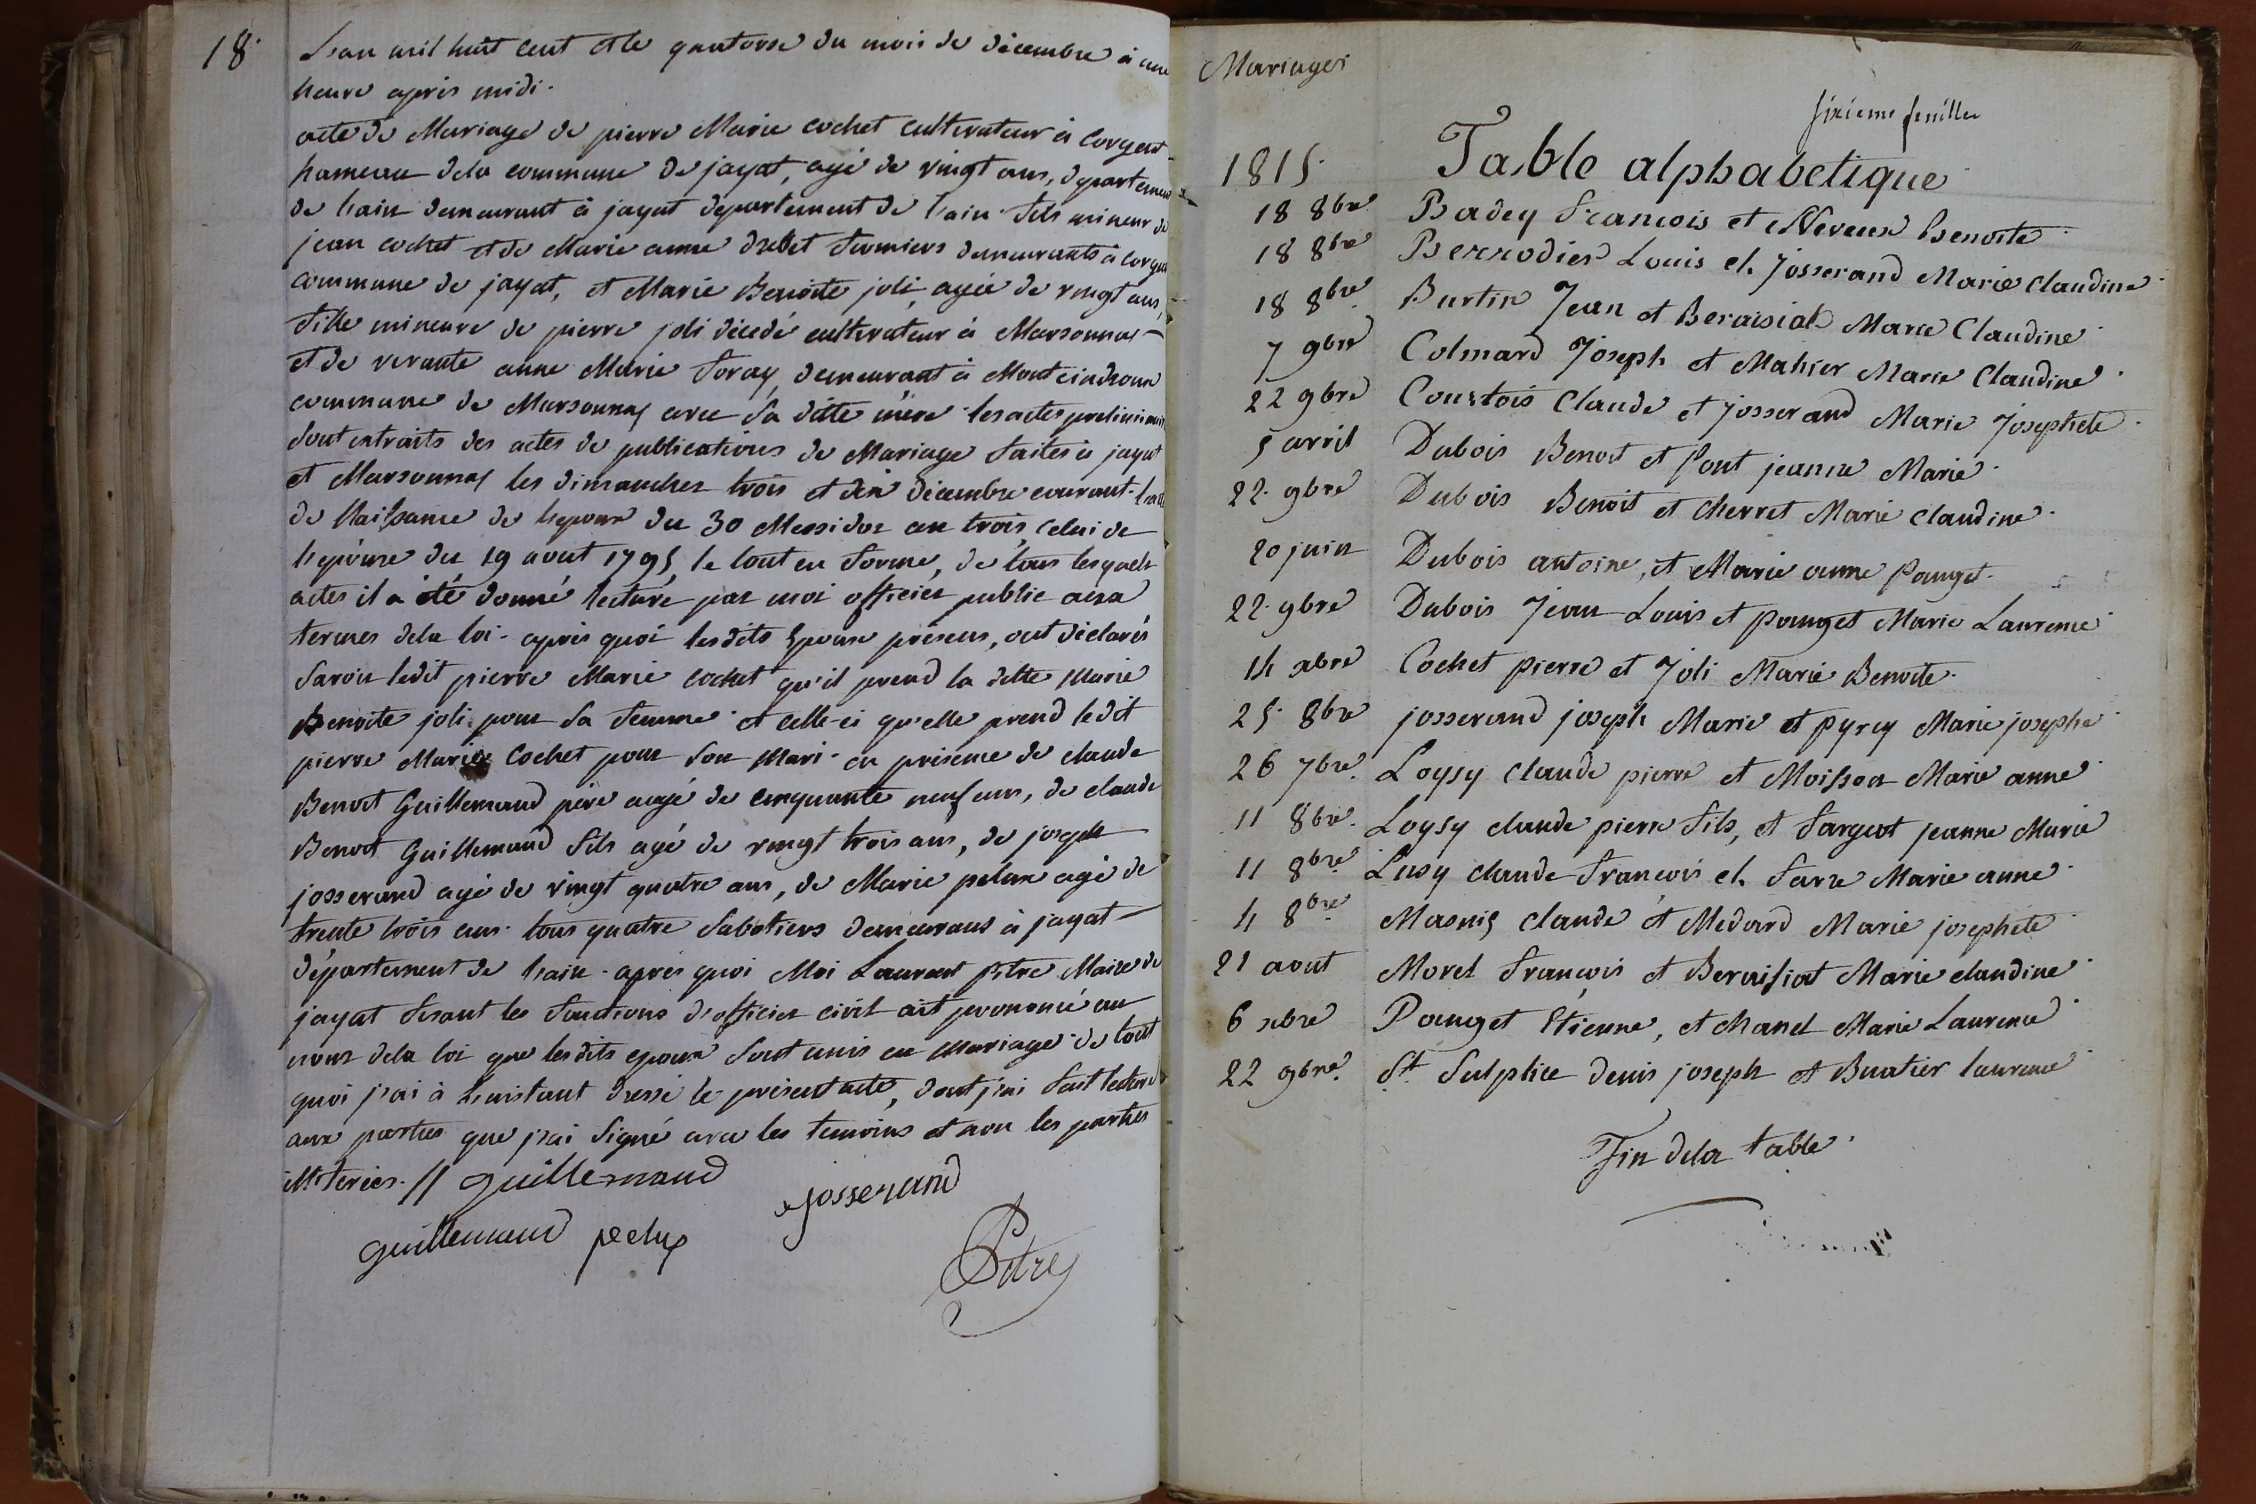 18.
L'an mil huit cent et le quatorse du mois de décembre à une
heure après midi.
acte de Mariage de pierre Marie cochet cultivateur à Corgent
hameau dela commune de jayat, agé de vingt ans, departement
de l'ain demeurant à jayat département de l'ain fils mineur de
jean cochet et de Marie anne drebet fermiers demeurants à corgent
commune de jayat, et Marie Benoite joli agée de vingt ans,
fille mineure de pierre joli décedé cultivateur à Marsonnas
et de vivante anne Marie foray, demeurant à Monteindroux
commune de Marsonnas avec sa ditte mère les actes preliminaires
sont extraits des actes de publications de Mariage faites à jayat
et Marsonnas les dimanches trois et dix décembre courant. l'acte
de Naissance de l'epoux du 30 Messidor an trois, celui de
l'epouse du 19 aout 1795, le tout en forme, de tous lesquels
actes il a été donné lecture par moi officier public aux
termes dela loi. après quoi lesdits Epoux présens, ont déclarés
savoir ledit pierre Marie cochet qu'il prend la ditte Marie
Benoite joli pour sa femme et celle-ci qu'elle prend ledit
pierre Marie Cochet pour son Mari. en présence de claude
Benoit Guillemaud père agé de cinquante neuf ans, de claude
Benoit Guillemaud fils agé de vingt trois ans, de joseph
josserand agé de vingt quatre ans, de Marie pelux agé de
trente trois ans. tous quatre Sabotiers demeurans à jayat
département de l'ain. après quoi Moi Laurent pitre Maire de
jayat fesant les fonctions d'officier civil ait prononcé au
nom dela loi que lesdits epoux sont unis en mariage. de tout
quoi j'ai à l'instant dressé le présent acte, dont j'ai fait lecture
aux parties que j'ai signé avec les temoins et non les parties
illiteries. // Guillemaud
josserand
guillemaud pelux
Pitre
Mariages
sixieme feuille
1815. Table alphabetique
18 8bre Badey francois et Neveux benoite
18 8bre Berrodier Louis et Josserand Marie Claudine
18 8bre Burtin Jean et Beraisiat Marie Claudine
7 9bre Colmard Joseph et Mahier Marie Claudine
22 9bre Courtois Claude et Josserand Marie Josephete
5 avril Dubois Benoit et Pont jeanne Marie
22 9bre Dubois Benoit et Cherret Marie Claudine
20 juin Dubois antoine, et Marie anne Pauget
22 9bre Dubois Jean Louis et pauget Marie Laurence
14 xbre Cochet pierre et Joli Marie Benoite
25 8bre josserand joseph Marie et pyrey Marie josephe
26 7bre Loysy claude pierre et Moisson Marie anne
11 8bre Loysy claude pierre fils, et fargeot jeanne Marie
11 8bre Lusy claude francois et farre Marie anne
4 8bre Masnis claude et Medard Marie josephete
21 aout Morel francois et Beraisiat Marie claudine
6 xbre Pauget Etienne, et chanel Marie Laurence
22 9bre St Sulpice denis joseph et Buatier laurence
Fin dela table